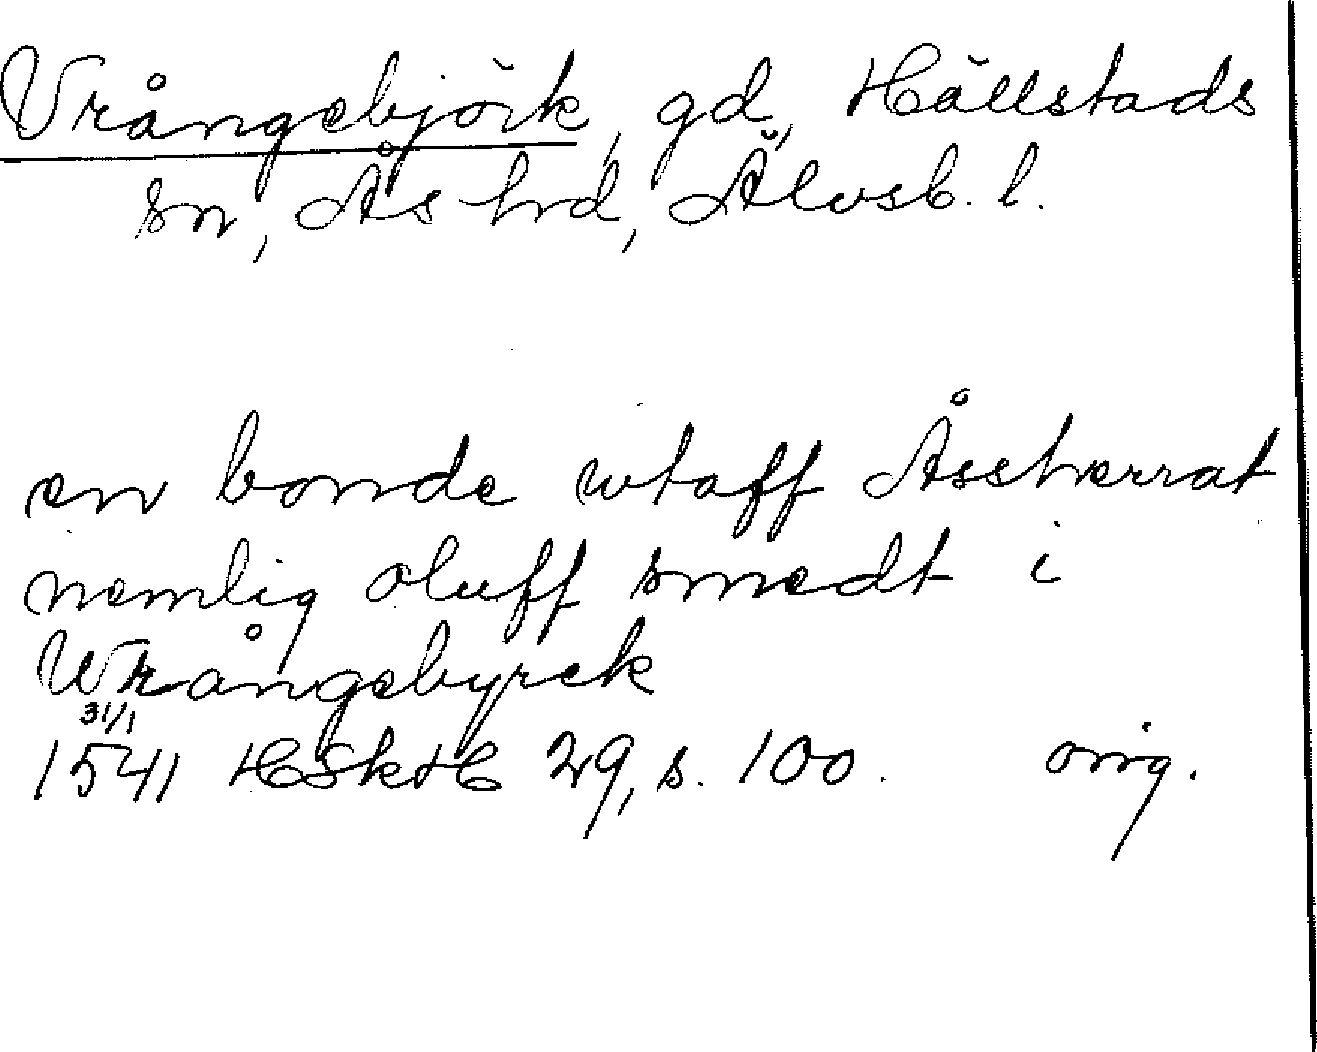 Vrångebjörk, gd, Hällstads
sn, Ås hrd, Älvsb. l.
en bonde wtaff Åssherrat
nemlig oluff smedt i
Wrångebyrck
31/1
1541 HSkH 29, s. 100. orig.